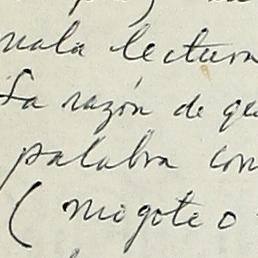 mala lectura
La razón de que
palabra con
(migote o